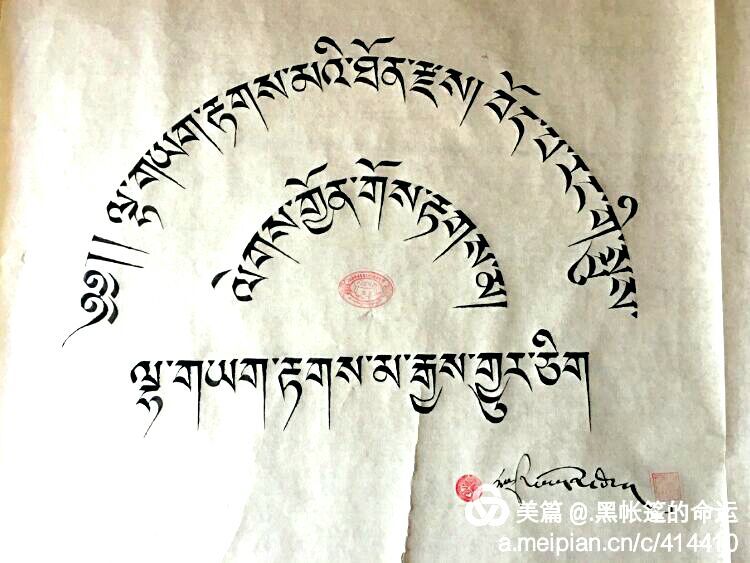 ༄༅།། ལྷ་གཡག་རྟགས་མའི་ཐོན་རྫས། བོད་
ལེགས་གྱོན་གོས་རྟགས་
ལྷ་གཡག་རྟགས་མ་རྒྱས་གྱུར་ཅིག
美篇 @.黑帐篷的命运
a.meipian.cn/c/414410